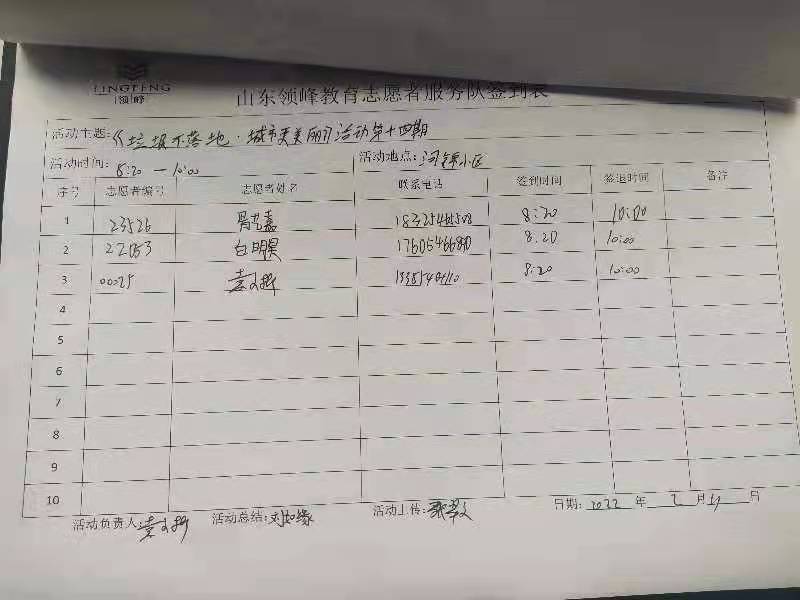 LINGFENG
领峰
山东领峰教育志愿者服务队签到表
活动主题:《垃圾不落地·城市更美丽》活动第十四期
活动时间: 8:20 — 10:00 活动地点:
序号 志愿者编号 志愿者姓名 联系电话 签到时间 签退时间 备注
1 23526 8:20 10:00
2 22053 白明昊 8.20 10:00
3 00025 8:20 10:00
4
5
6
7
8
9
10
活动负责人: 活动总结: 活动上传: 日期: 2022 年 2 月 日